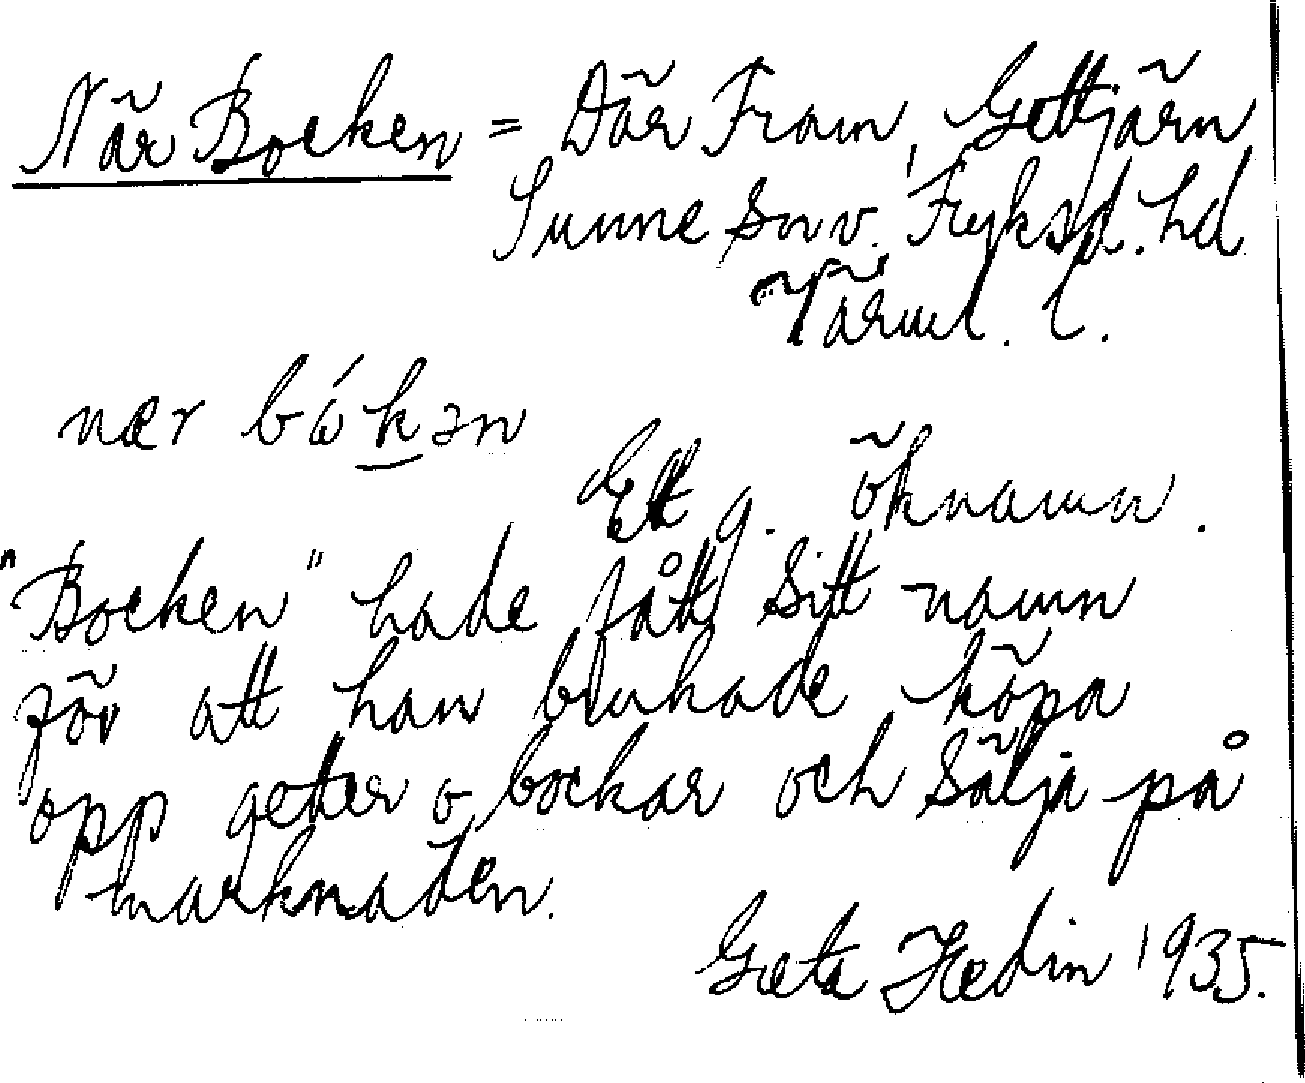 När Bocken = Där Fram, Gettjärn
Sunne snv. Fryksd. hd
Värml. l.
nær bώkən
Ett g. öknamn.
"Bocken" hade fått sitt namn
för att han brukade köpa
opp getter o bockar och sälja på
marknaden.
Greta Hedin 1935.